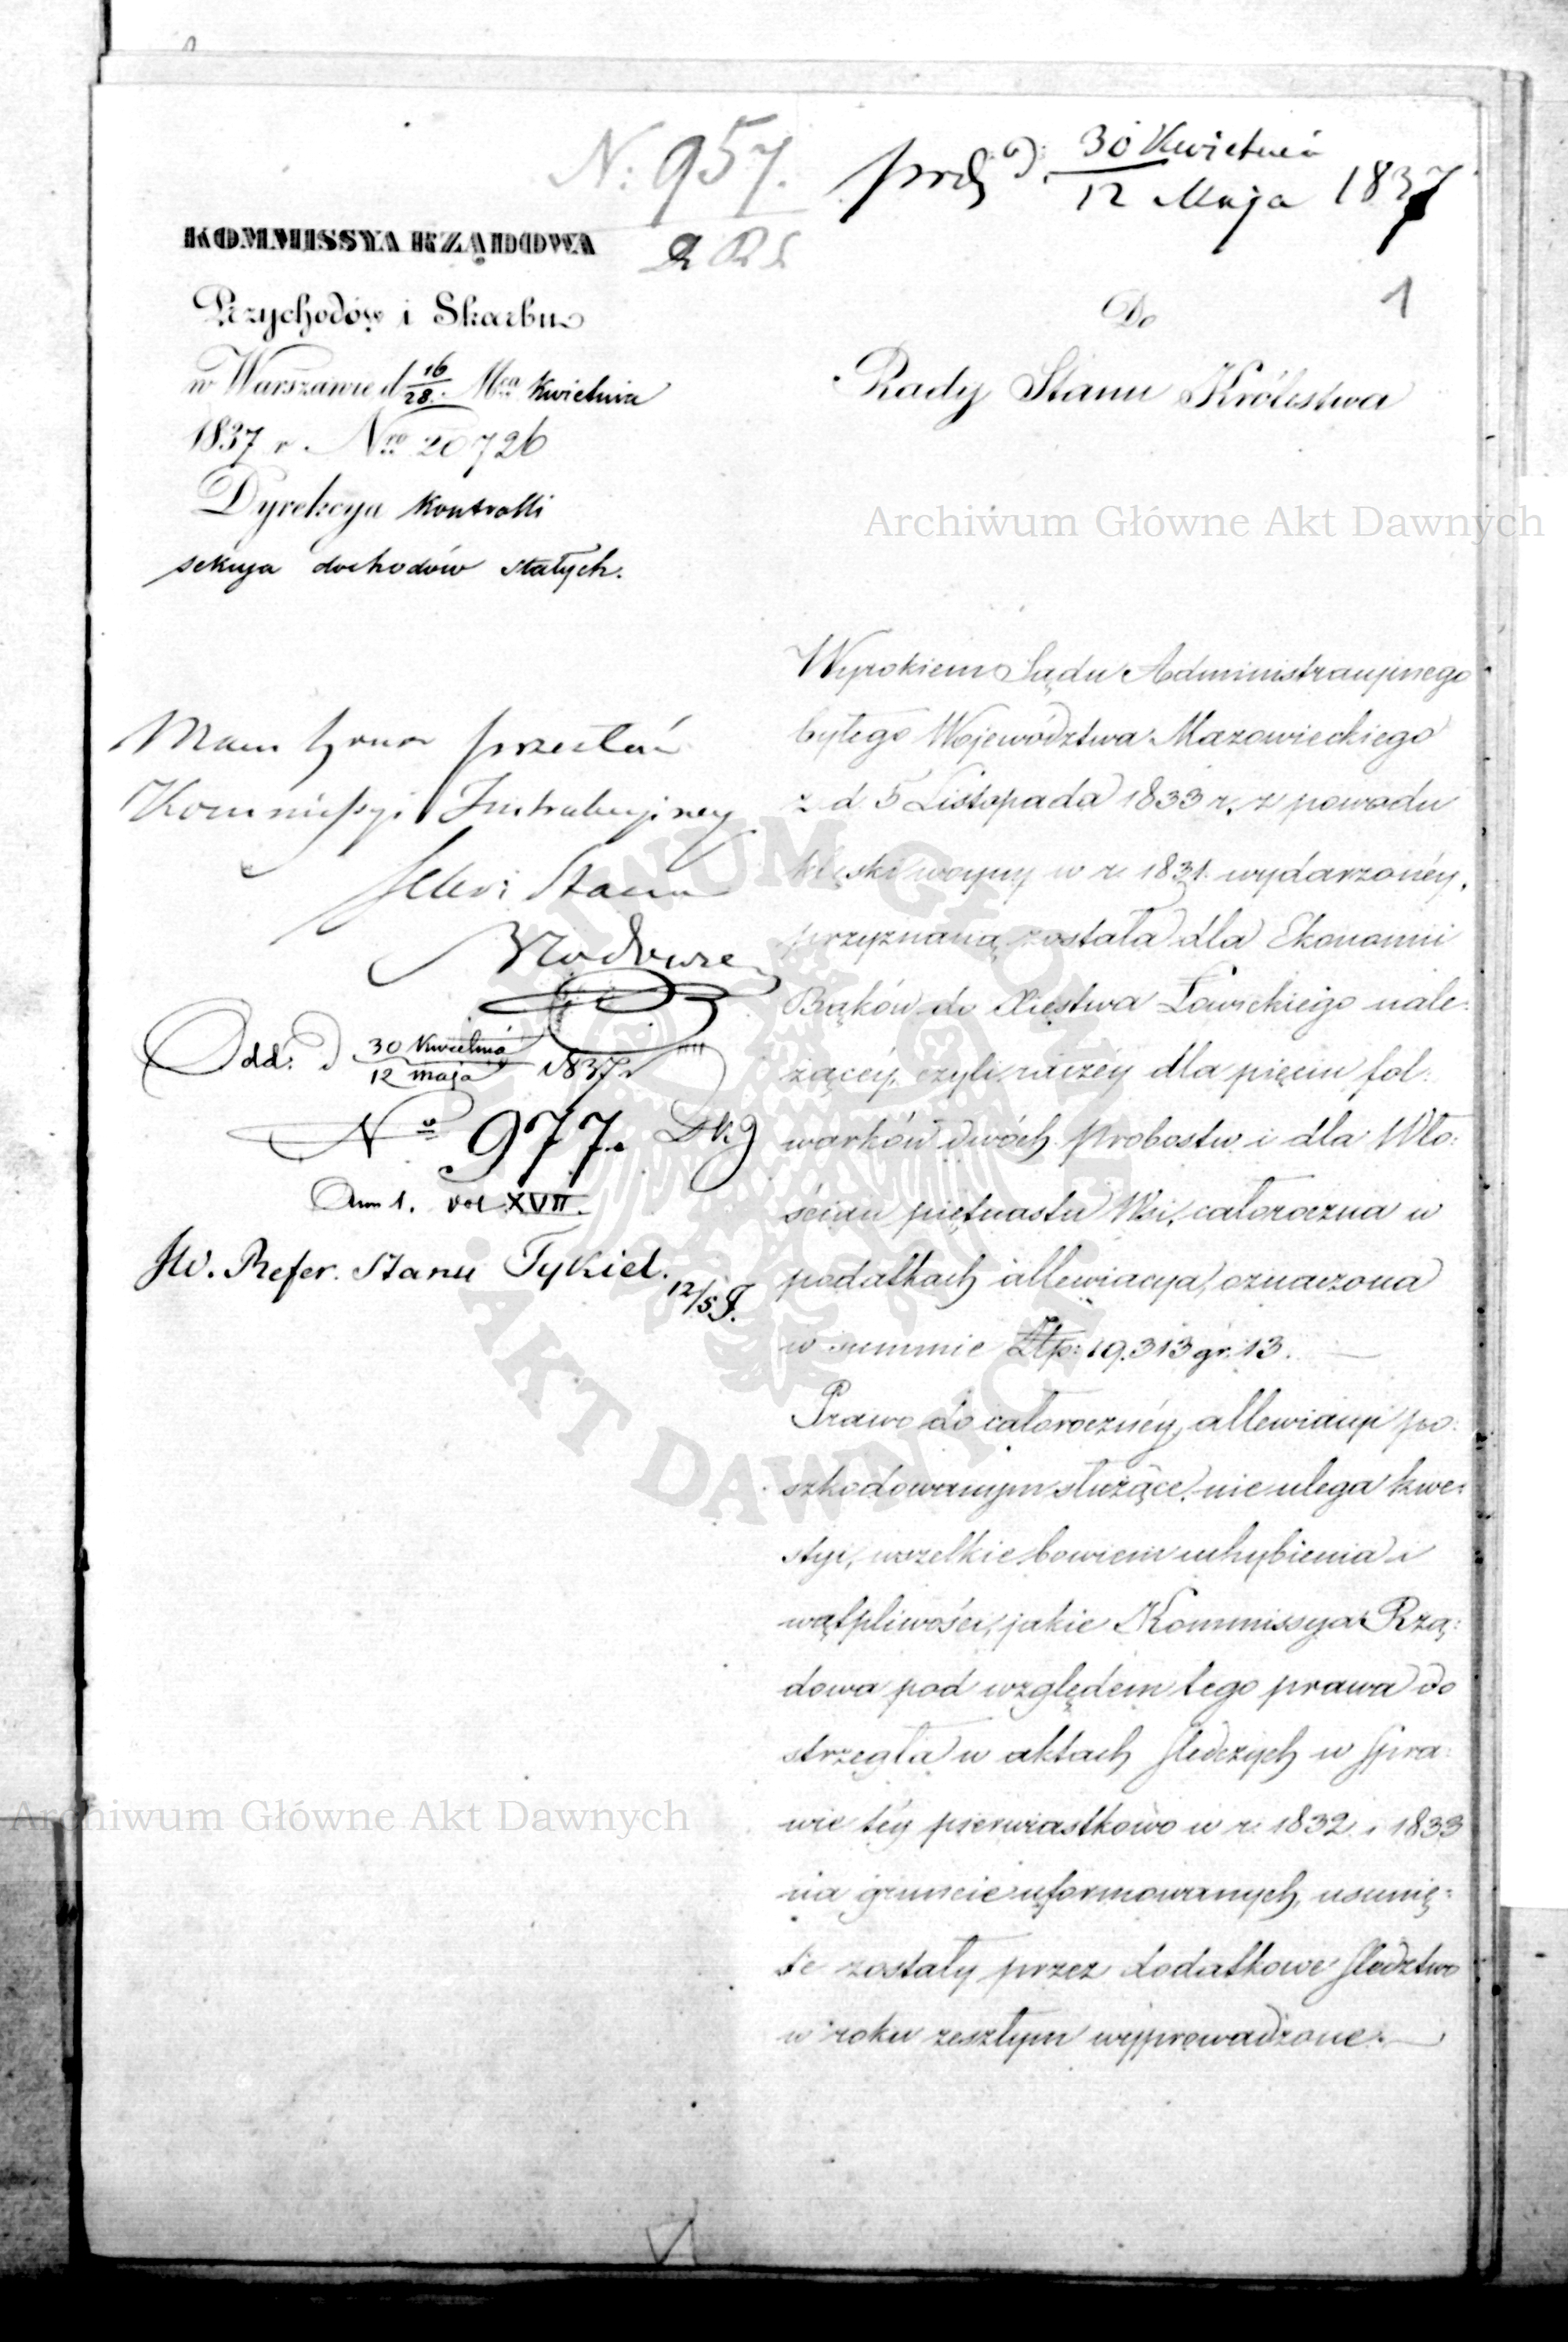 N: 957.
prds d. 30 Kwietnia
12 Maja 1837
1
KOMMISSYA RZĄDOWA
Przychodów i Skarbu
w Warszawie d 16/28. Mca Kwietnia
1837 r. Nro 20726
Dyrekcya Kontrolli
sekcya dochodów stałych.
Do
Rady Stanu Królestwa
Archiwum Główne Akt Dawnych
Mam honor przesłać
Kommissyi Instrukcyjney
Stanu
Odd: d 30 Kwietnia
12 maja 1837 r
No 977.
vol XVII.
JW. Refer. Stanu Tykiel.
12/5 J.
Wyrokiem Sądu Administracyinego
byłego Województwa Mazowieckiego
z d 5 Listopada 1833 r. z powodu
klęski woyny w r. 1831. wydarzonéy,
przyznaną została dla Ekonomii
Bąków do Xięstwa Łowickiego nale:
żącéy, czyli raczéy dla pięciu fol:
warków dwóch Probostw i dla Wło:
ścian piętnastu Wsi, całoroczna w
podatkach allewiacya, oznaczona
w summie Złp: 19.313 gr. 13.
Prawo do całorocznéy allewiacyi po:
szkodowanym służące, nie ulega kwe:
styi, wszelkie bowiem uchybienia i
wątpliwości, jakie Kommissya Rzą:
dowa pod względem tego prawa do
strzegła w aktach śledczych w spra:
wie téy pierwiastkowo w r. 1832 i 1833
na gruncie uformowanych, usunię:
te zostały przez dodatkowe śledztwo
w roku zeszłym wyprowadzone.
Archiwum Główne Akt Dawnych
ARCHIWUM GŁÓWNE
AKT DAWNYCH